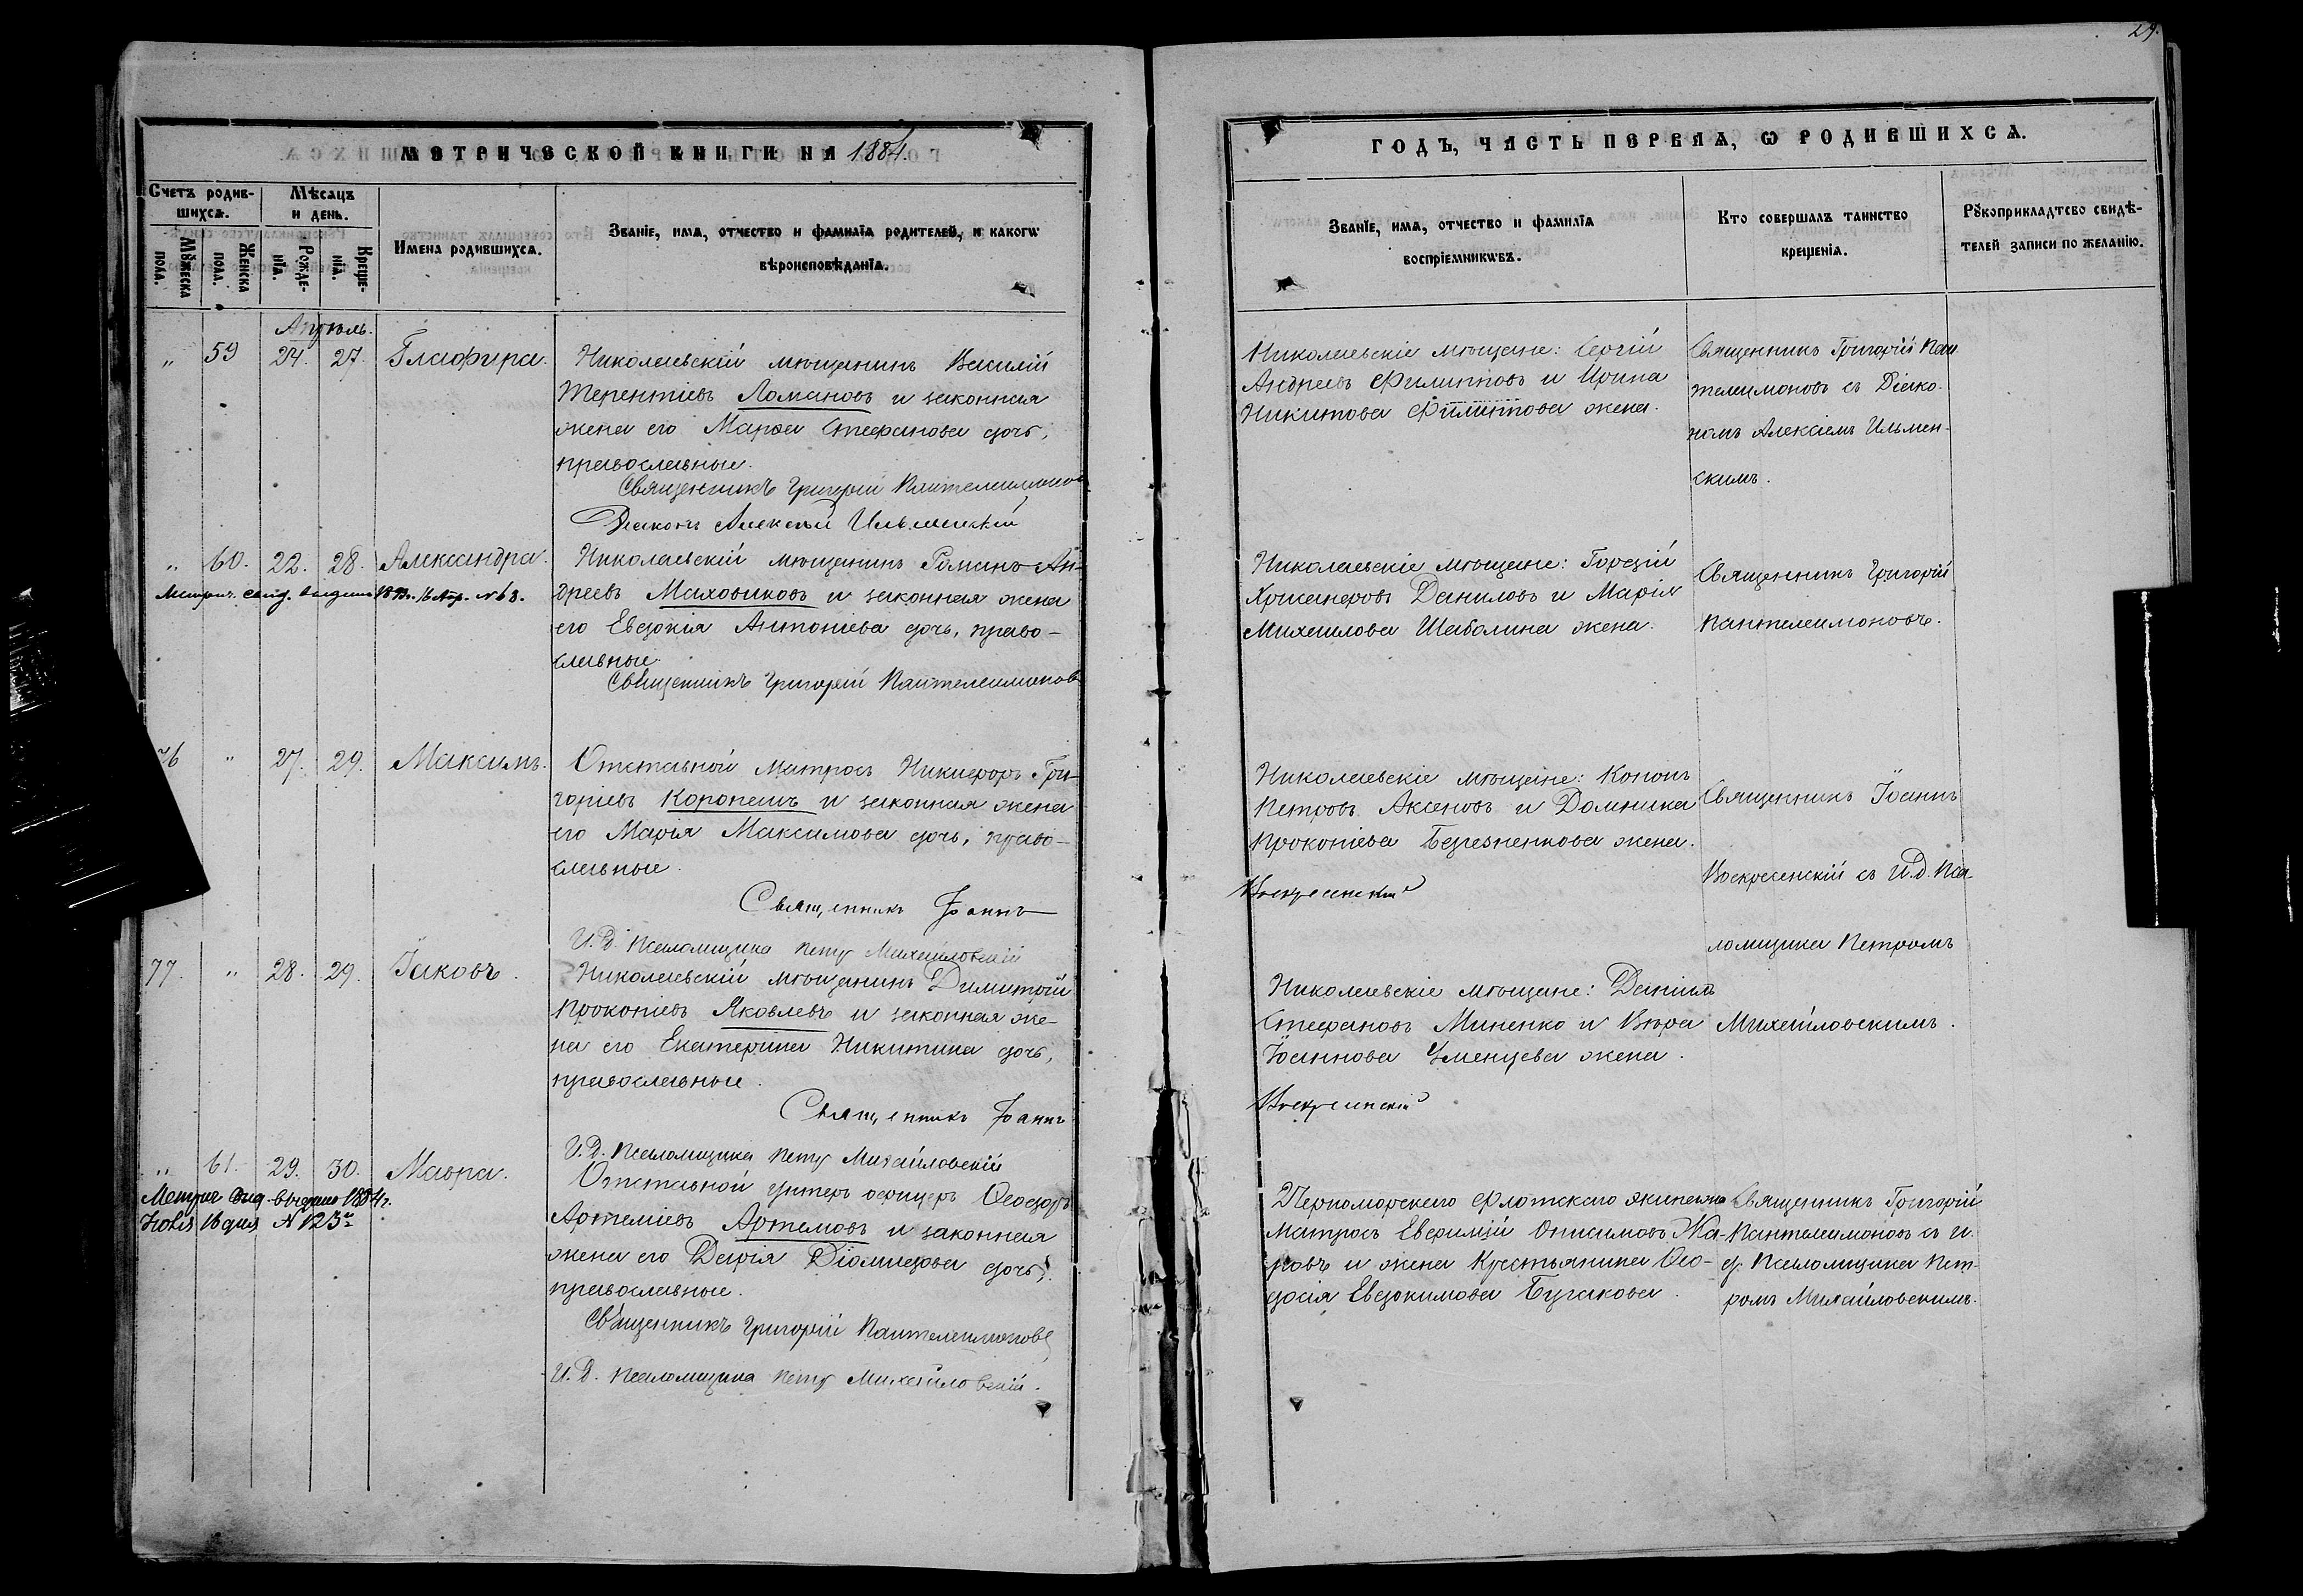 29.
МЕТРИЧЕСКОЙ КНИГИ НА 1884.
Счетъ родив-
шихсѧ.
Мѣсѧцъ
и день.
Мꙋжеска
пола.
Женска
пола.
Рожде-
нїѧ.
Креще-
нїѧ.
Имена родившихсѧ.
Званїе, имѧ, отчество и фамилїѧ родителей, и какогѡ
вѣроисповѣданїѧ.
Апрѣль.
„ 59 24. 27. Глафира.
Николаевскій мѣщанинъ Василій
Терентіевъ Ломановъ и законная
жена его Марѳа Стефанова дочь,
православные.
Священникъ Григорій Пантелеимоновъ
Діаконъ Алексѣй Ильменскій
„ 60. 22. 28. Александра.
Метрич. свид. выдано 1893 г. 16 Апр. № 63.
Николаевскій мѣщанинъ Романъ Ан-
дреевъ Маховиковъ и законная жена
его Евдокія Антонiева дочь, право-
славные.
Священникъ Григорій Пантелеимоновъ
76 „ 27. 29. Максимъ.
Отставной матросъ Никифоръ Гри-
горіевъ Коропемъ и законная жена
его Марія Максимова дочь, право-
славные.
Священникъ Іоаннъ
И. Д. Псаломщика Петръ Михайловскій
77. „ 28. 29. Іаковъ.
Николаевскій мѣщанинъ Димитрій
Прокопіевъ Яковлевъ и законная же-
на его Екатерина Никитина дочь,
православные.
Священникъ Іоаннъ
И. Д. Псаломщика Петръ Михайловскій
„ 61. 29. 30. Мавра.
Метрич. свид. выдано 1884 г.
16 дня № 123
Отставной унтеръ офицеръ Ѳеодоръ
Артеміевъ Артемовъ и законная
жена его Дарія Діомидова дочь,
православные.
Священникъ Григорій Пантелеимоновъ
И. Д. Псаломщика Петръ Михайловскій.
ГОДЪ, ЧАСТЬ ПЕРВАѦ, Ѡ РОДИВШИХСѦ.
Званїе, имѧ, отчество и фамилїѧ
воспрїемникѡвъ.
Кто совершалъ таинство
крещенїѧ.
Рꙋкоприкладтсво свидѣ-
телей записи по желанїю.
Николаевскіе мѣщане: Сергій
Андреевъ Филипповъ и Ирина
Никитова Филипова жена.
Священникъ Григорій Пан
телеимоновъ съ Діако-
номъ Алексіемъ Ильмен-
скимъ.
Николаевскіе мѣщане: Гордій
Даниловъ и Марія
Михаилова Шаболина жена.
Священникъ Григорій
Пантелеимоновъ.
Николаевскіе мѣщане: Кононъ
Петровъ Аксеновъ и Домника
Прокопіева Березненкова жена.
Воскресенскій
Священникъ Іоаннъ
Воскресенскій съ И. Д. Пса-
ломщика Петромъ
Михайловскимъ.
Николаевскіе мѣщане: Даніилъ
Стефановъ Миненко и Вѣра
Іоаннова Уменцева жена.
Воскресенскій
Черноморскаго флотскаго экипажа
матросъ Евфимій Онисимовъ Жа-
ровъ и жена крестьянина Ѳео-
досія Евдокимова Бугакова.
Священникъ Григорій
Пантелеимоновъ съ и.
д. Псаломщика Пет-
ромъ Михайловскимъ.